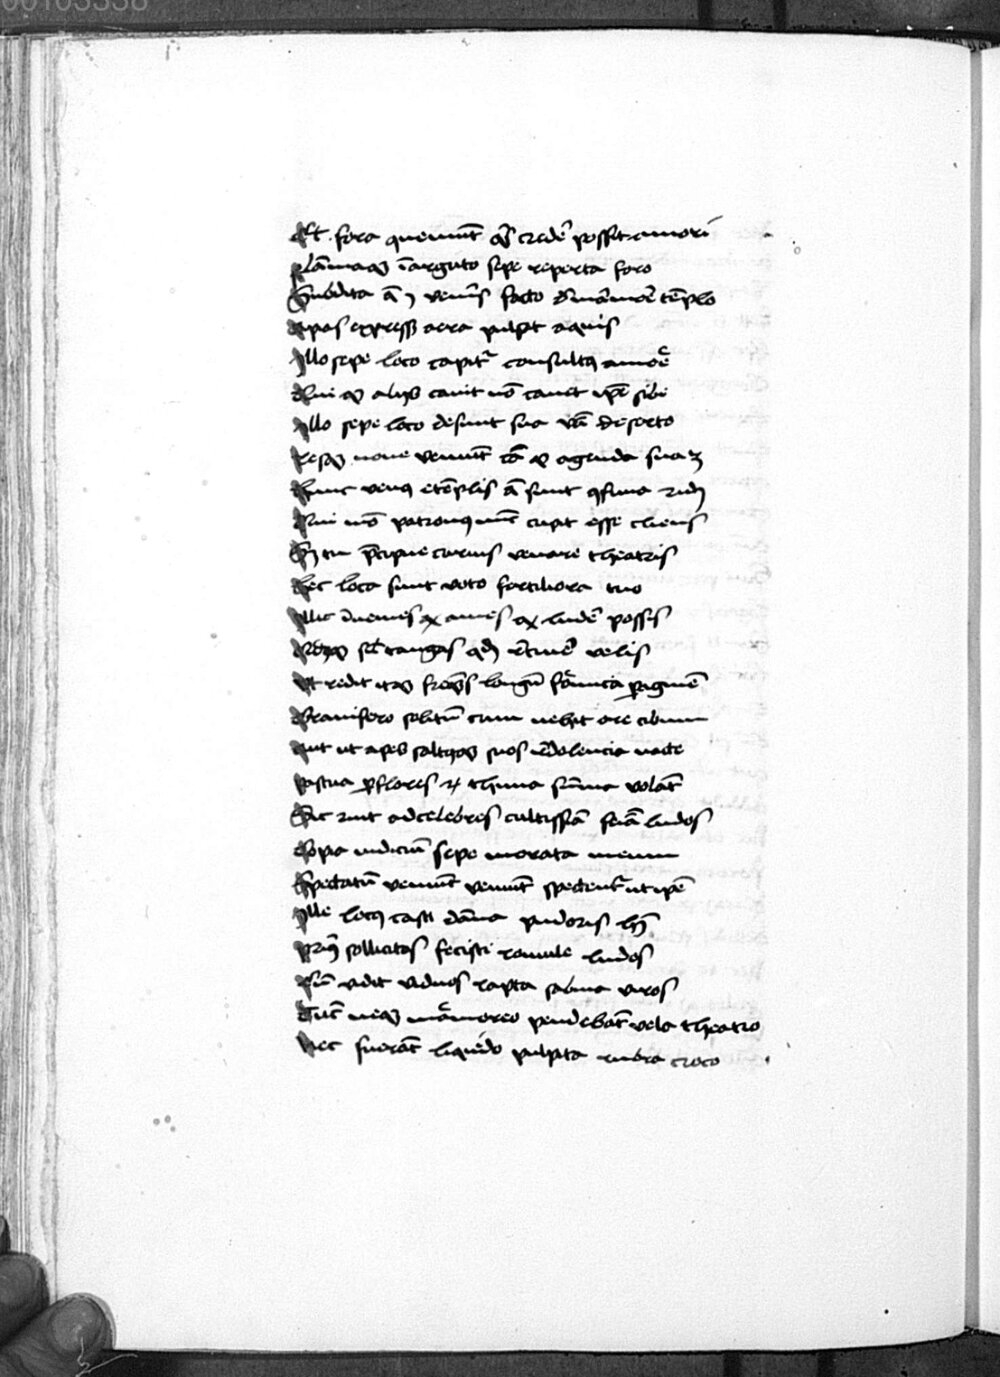 00103338
Et fora queniunt q̃s crede᷒ possit amori
Flãmaqꝫ ĩarguto sepe reperta foro
Subdita q̃ ꝫ vene᷒is facto d marmore tẽplo
Apias express aera pulsat aquis
Illo sepe loco capit᷒ consultꝰ amoẽ
Qui qꝫ aliis cauit nõ cauet ipẽ sibi
Illo sepe loco desunt sua vba deserto
Resqꝫ noue veniunt cã qꝫ agenda sua ꝫ
Hunc venꝰ etẽplis q̃ sunt ꝯfinia ridꝫ
Qui mõ patronꝰ nũc cupit esse cliens
Sꝫ tu p̃cipue curuis venare theatris
Hec loca sunt voto fertiliora tuo
Illic inuenies qꝫ ames qꝫ lude᷒ possis
Qdqꝫ sel tangas qdꝫ tene᷒ velis
Ut redit itqꝫ freq̃ns longũ formica p agmẽ
Granifero solitũ cum vehit ore cibum
Aut ut apes saltusqꝫ suos redolencia nacte
Pascua p flores et thima sũma volãt
Sic ruit adcelebres cultissĩa feiã ludos
Copia iudiciũ sepe morata meum
Spectatũ veniũt veniũt spectent᷒ ut ipẽ
Ille locꝰ casti dãna pudoris hꝫ
Primꝰ sollicitos fecisti romule ludos
Cũ vidit viduos rapta sabina viros
Tũc neqꝫ marmoreo pendebãt vela theatro
Nec fuerãt liquido pulpita rubra croco